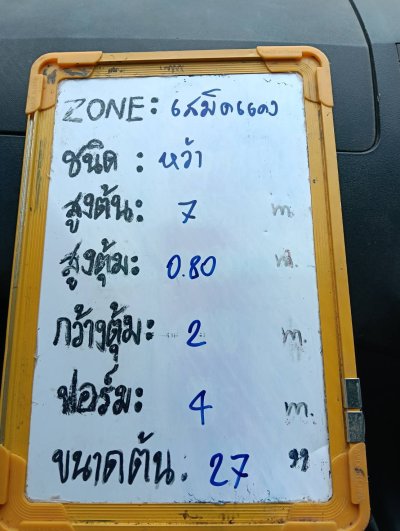 ZONE: เสม็ดแดง
ชนิด : หว้า
สูงต้น: 7 m.
สูงตุ้ม: 0.80 m.
กว้างตุ้ม: 2 m.
ฟอร์ม: 4 m.
ขนาดต้น: 27 "